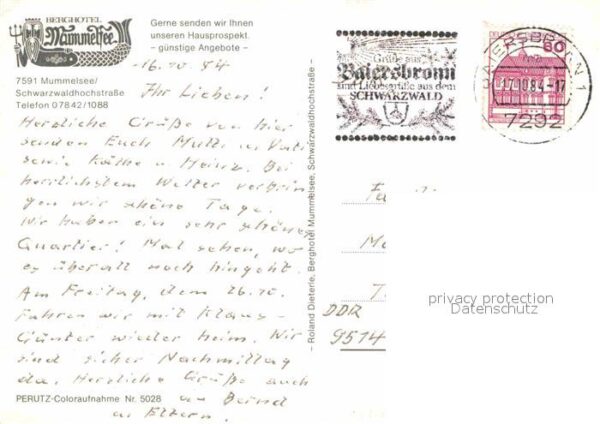 BERGHOTEL
Mummelsee
Gerne senden wir Ihnen
unseren Hausprospekt.
– günstige Angebote –
7591 Mummelsee/
Schwarzwaldhochstraße
Telefon 07842/1088
16.10.84
Ihr Lieben!
Herzliche Grüße von hier
senden Euch Mutti u. Vati
sowie Käthe u. Heinz. Bei
herrlichstem Wetter verbrin-
gen wir schöne Tage.
Wir haben ein sehr schönes
Quartier! Mal sehen, wo
es überall noch hingeht.
Am Freitag, dem 26.10.
fahren wir mit Klaus-
Günter wieder heim. Wir
sind sicher Nachmittag
da. Herzliche Grüße auch
an Bernd
u. Eltern.
PERUTZ-Coloraufnahme Nr. 5028
– Roland Dieterle, Berghotel Mummelsee, Schwarzwaldhochstraße –
Grüße aus
Baiersbronn
sind Liebesgrüße aus dem
SCHWARZWALD
60
BAIERSBRONN 1
17.10.84-17
7292
DDR
9514
privacy protection
Datenschutz